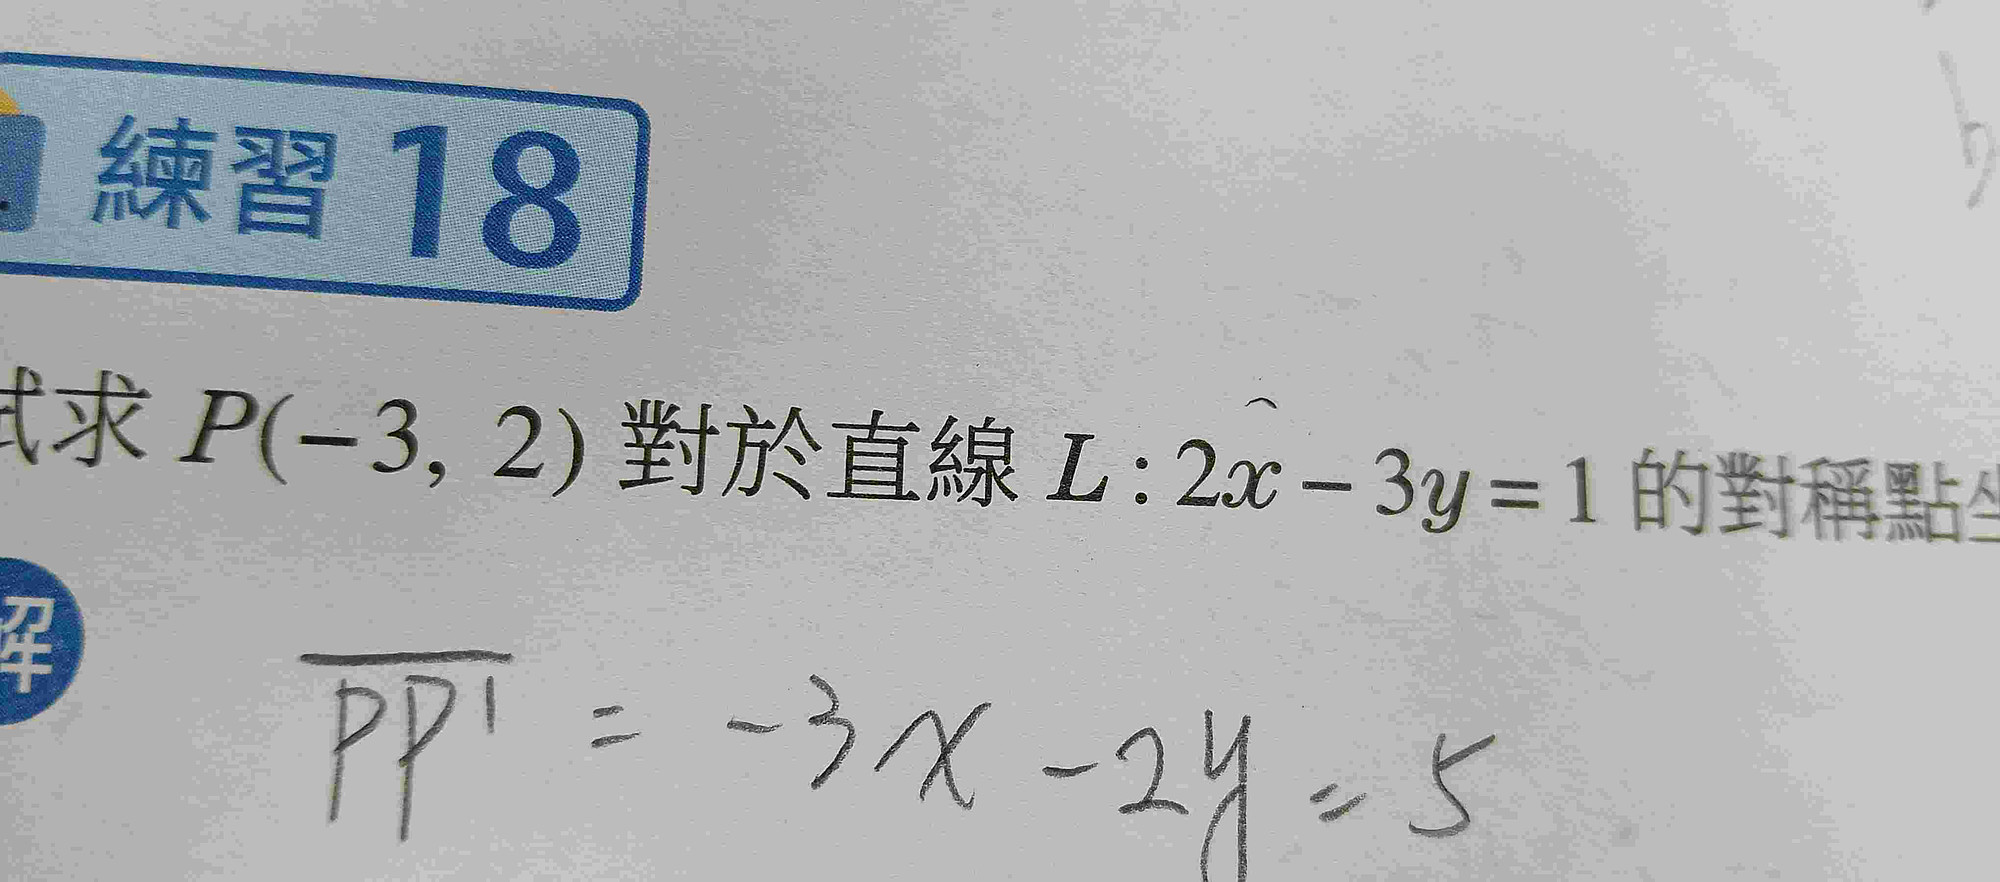 練習 18
試求 P(−3, 2) 對於直線 L : 2x − 3y = 1 的對稱點坐
解
PP' = -3x -2y = 5